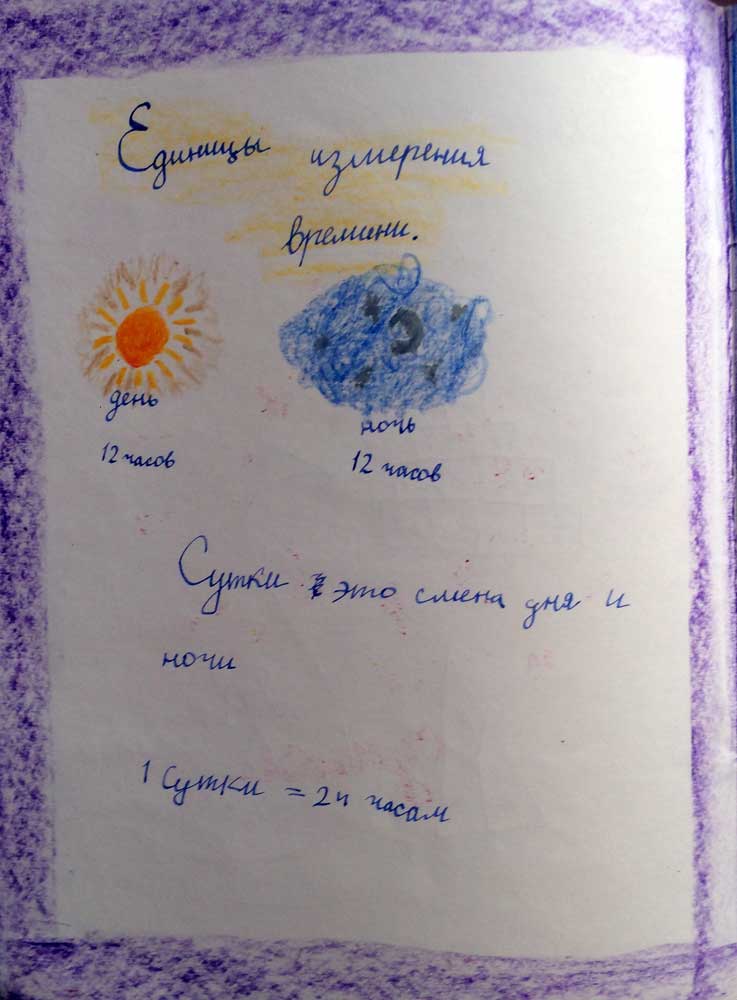 Единицы измерения
времени.
день
ночь
12 часов
12 часов
Сутки это смена дня и
ночи
1 Сутки = 24 часам